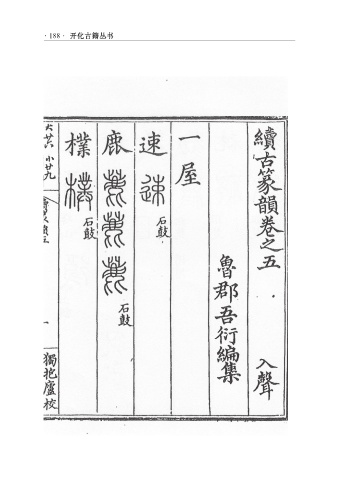 · 188 · 开化古籍丛书
續古篆韻卷之五 入聲
魯郡吾衍編集
一屋
速 石鼓
鹿 石鼓
樸 石鼓
大廿六 小廿九
獨抱廬校